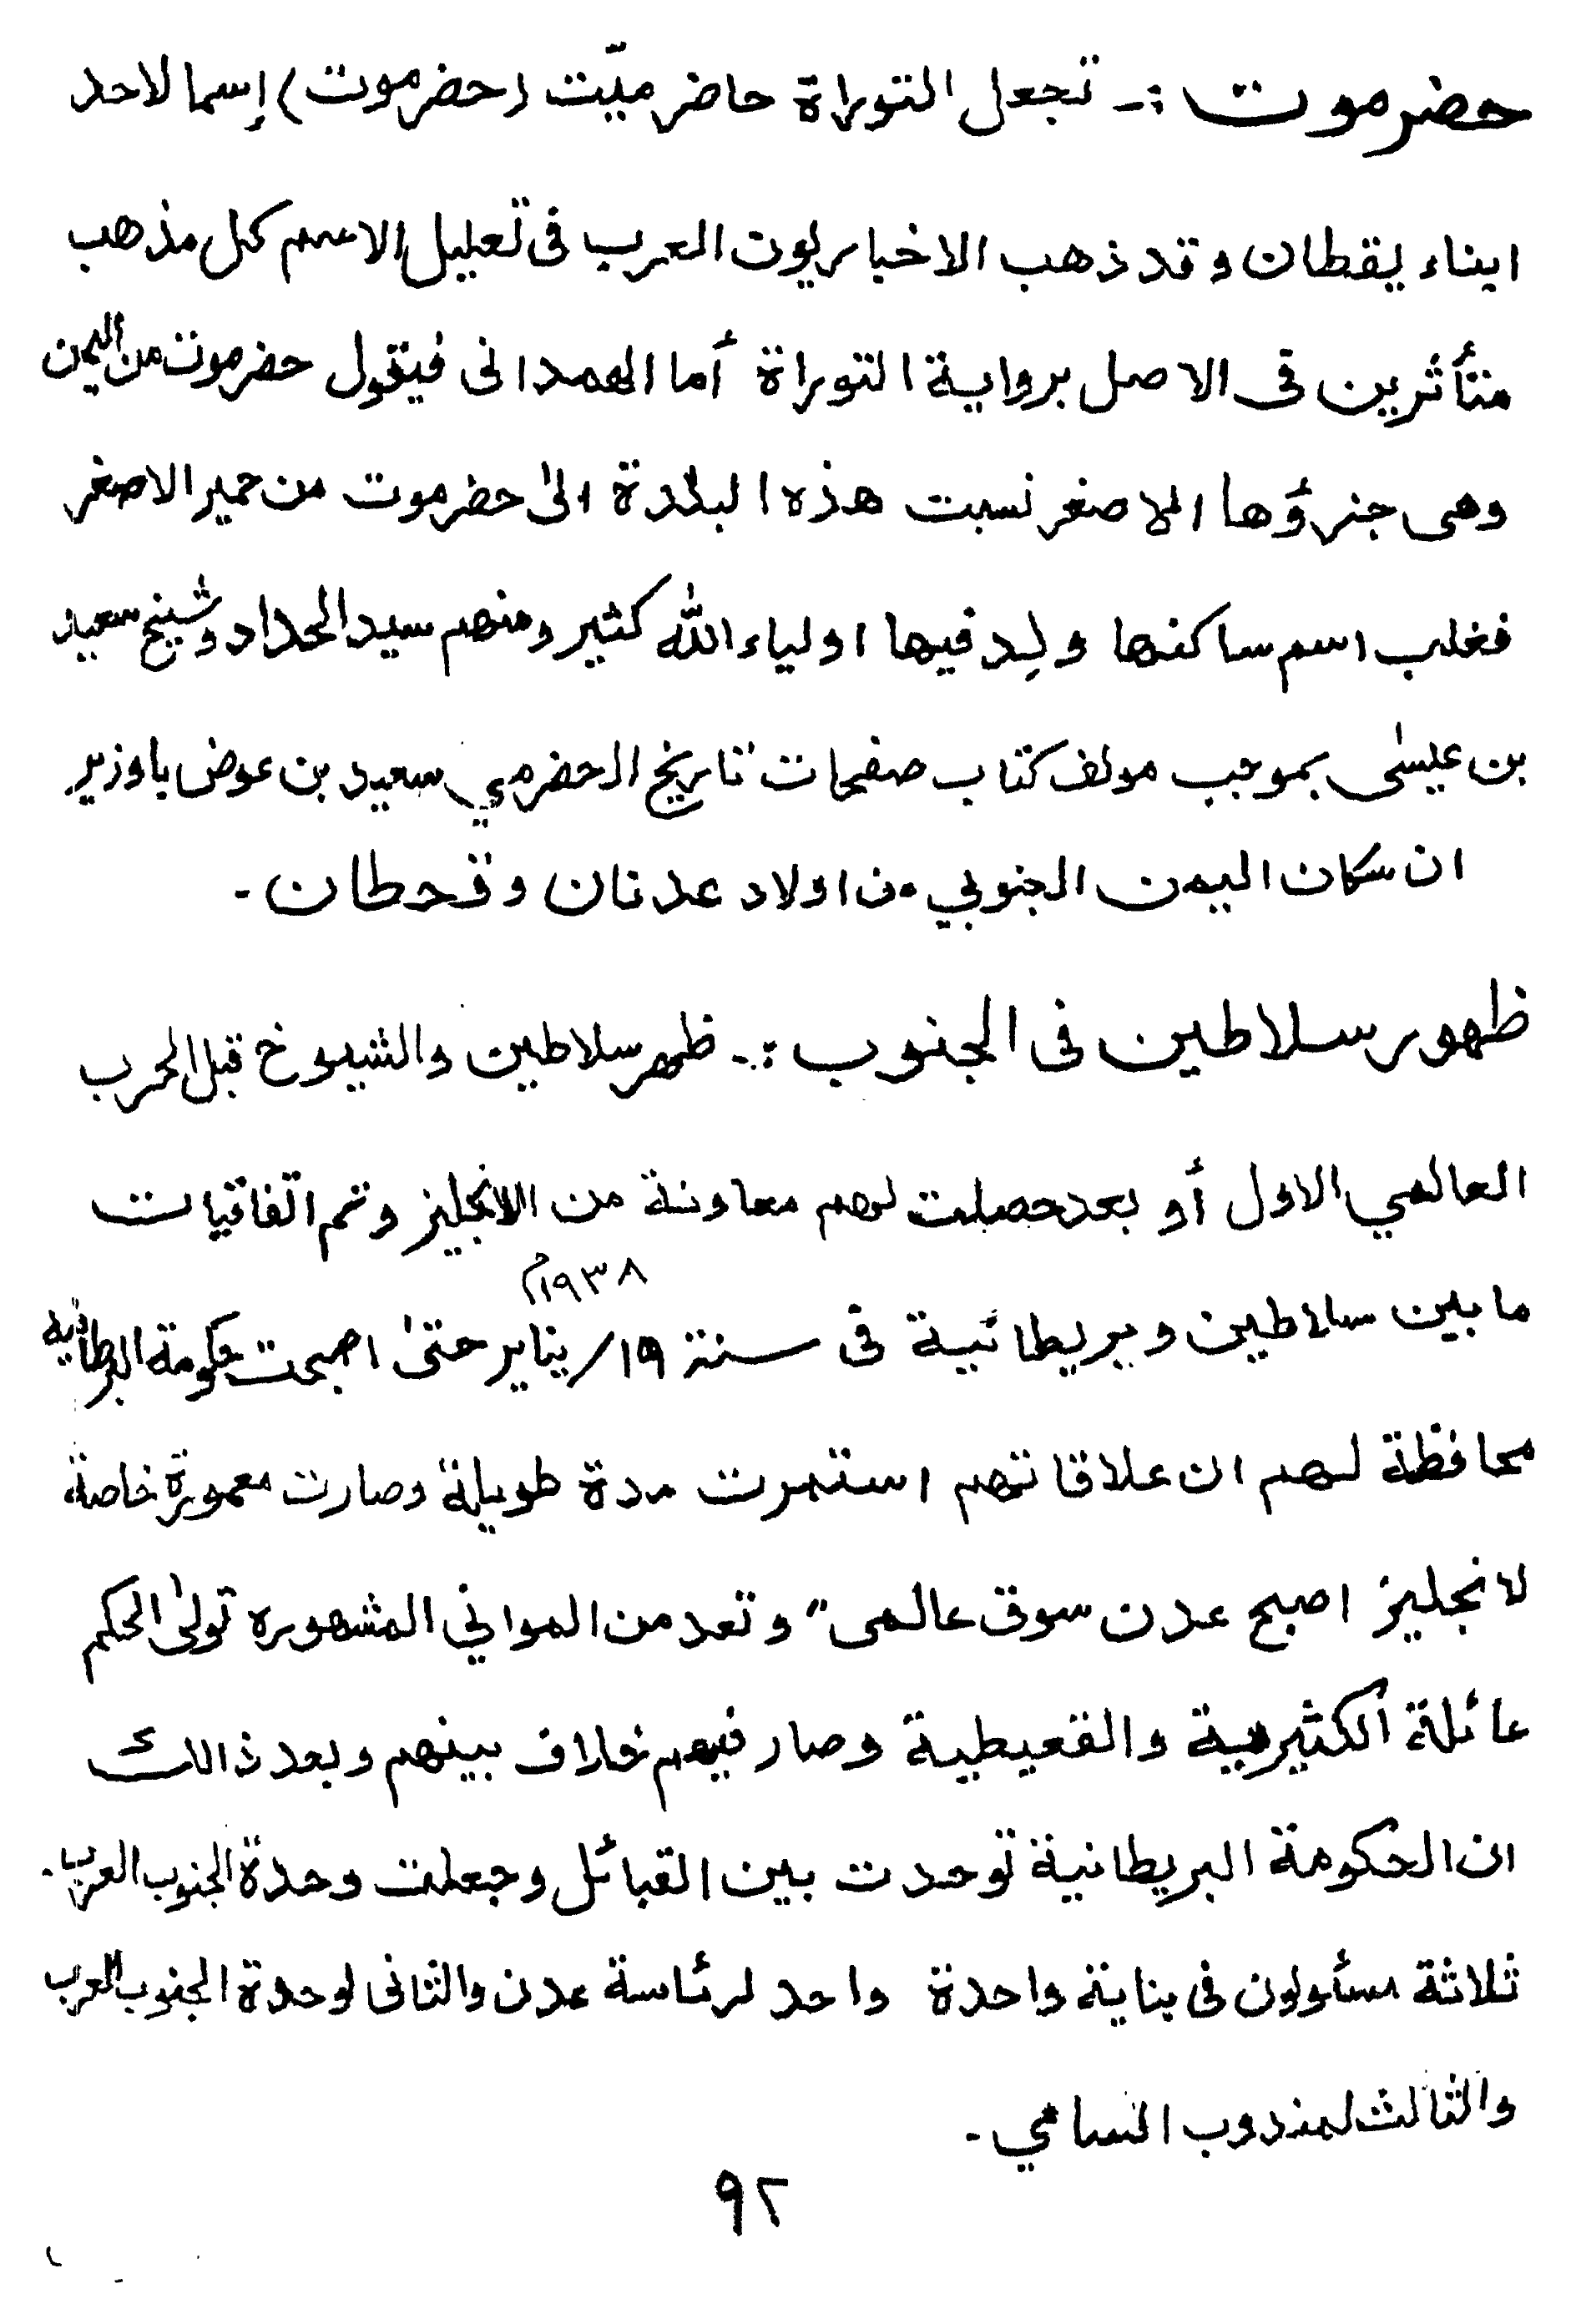 حضرموت :- تجعل التوراة حاضر ميّت (حضرموت) إسما لاحد
ابناء يقطان وقد ذهب الاخباريون العرب فى تعليل الاسم كل مذهب
متأثرين فى الاصل برواية التوراة أما الهمدانى فيقول حضرموت من اليمن
وهى جزؤها الاصغر نسبت هذه البلدة الىٰ حضرموت من حمير الاصغر
فغلب اسم ساكنها ولِد فيها اولياء الله كثير ومنهم سيد الحداد وشيخ سعيد
بن عيسٰى بموجب مولف كتاب صفحات تاريخ الحضرمي سعيد بن عوض باوزير
ان سكان اليمن الجنوبي من اولاد عدنان وقحطان -
ظهور سلاطين فى الجنوب :- ظهر سلاطين والشيوخ قبل الحرب
العالمي الاول أو بعد حصلت لهم معاونة من الانجليز وتم اتفاقيات
١٩٣٨م
ما بين سلاطين وبريطانية فى سنة ١٩/يناير حتىٰ اصبحت حكومة البريطانيه
محافظة لهم ان علاقاتهم استمرت مدة طويلة وصارت معمورة خاصة
لانجليز اصبح عدن سوق عالمى" وتعد من المواني المشهوره تولىٰ الحكم
عائلة الكثيرية والقعيطية وصار فيهم خلاف بينهم وبعد ذالك
ان الحكومة البريطانية توحدت بين القبائل وجعلت وحدة الجنوب العرب -
ثلاثة مسئولون فى بناية واحدة واحد لرئاسة عدن والثانى لوحدة الجنوب العرب
والثالث لمندوب السامي -
٩٢